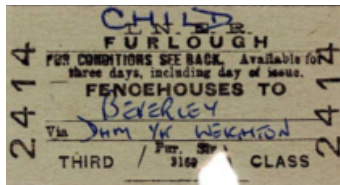 CHILD
L N E R
FURLOUGH
FOR CONDITIONS SEE BACK. Available for
three days, including day of issue.
FENCEHOUSES TO
BEVERLEY
Via DHM YK WEIGHTON
Fur.
THIRD / 3169 CLASS
2414
2414